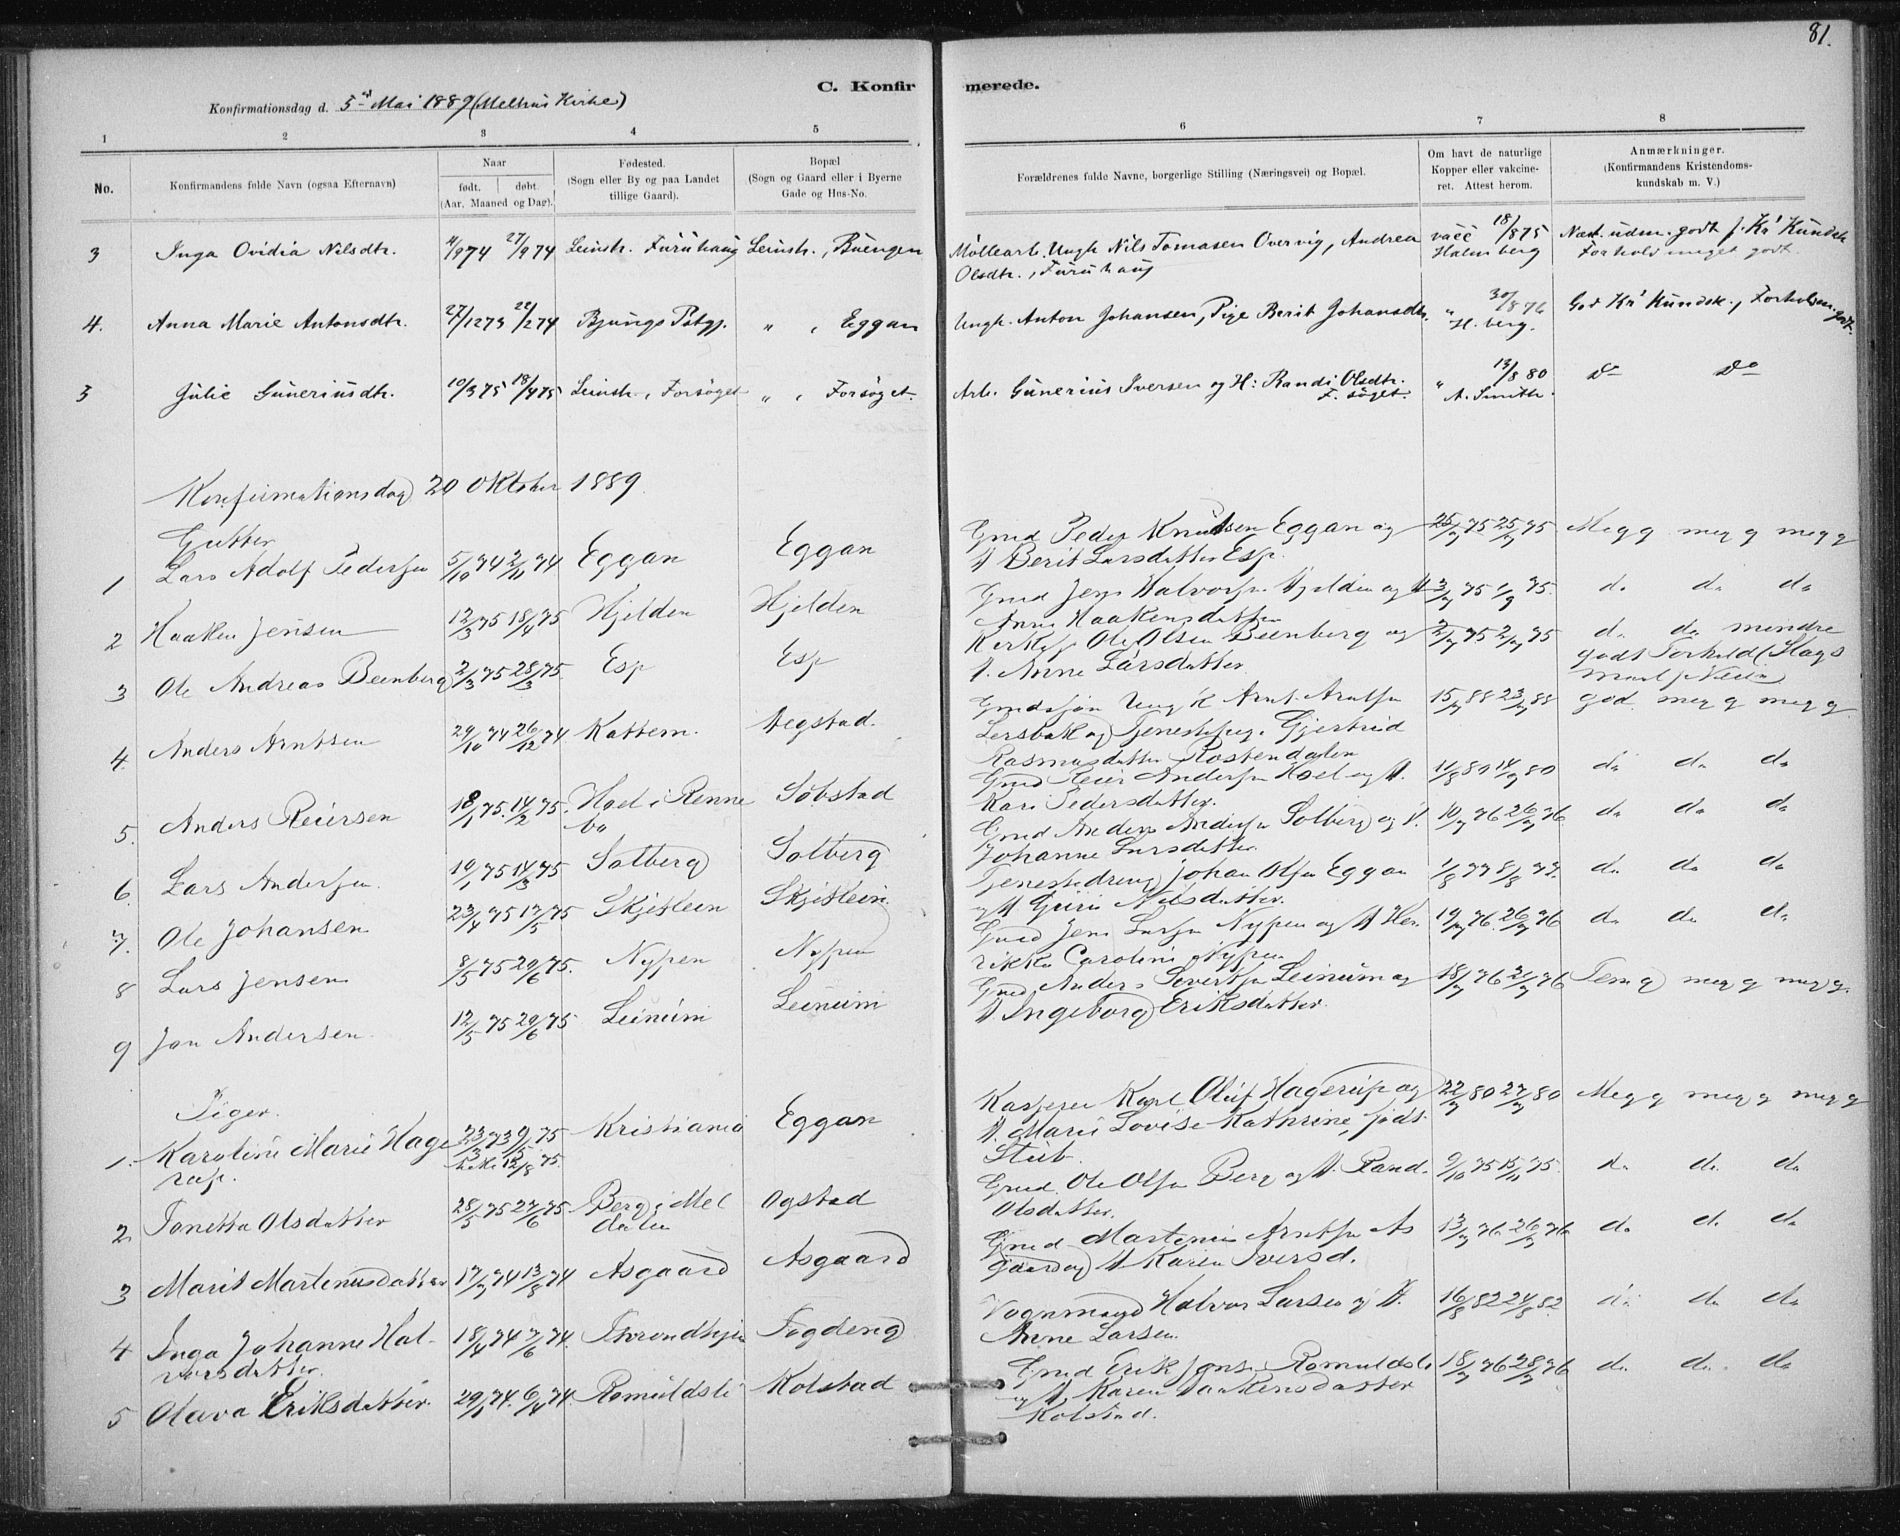 81.
C. Konfirmerede.
Konfirmationsdag d. 5te Mai 1889 (Melhus Kirke)
1 2 3 4 5 6 7 8
No. Konfirmandens fulde Navn (ogsaa Efternavn) Naar født. døbt. (Aar, Maaned og Dag). Fødested. (Sogn eller By og paa Landet tillige Gaard). Bopæl (Sogn og Gaard eller i Byerne Gade og Hus-No. Forældrenes fulde Navne, borgerlige Stilling (Næringsvei) og Bopæl. Om havt de naturlige Kopper eller vakcineret. Attest herom. Anmærkninger. (Konfirmandens Kristendomskundskab m. V.)
3 Inga Ovidia Nilsdtr. 4/974 27/974 Leinstr. Furuhaug Leinstr., Buengen Møllearb. Ungk. Nils Tomasen Overvig, Andrea vacc 18/875 Næst. udm. godt f. Kr. Kundsk
Olsdtr., Furuhaug Halmsberg Forhold meget godt.
4. Anna Marie Antonsdtr. 27/1273 22/274 Bjungs Pstgj. " , Eggan Ungk. Anton Johansen, Pige Berit Johansdtr. " 30/876 God Kr. Kundsk., Forhold m. godt.
H. berg.
5 Julie Guneriusdtr. 10/375 18/475 Leinstr., Forsøget " , Forsøget. Arb. Gunerius Iversen og H: Randi Olsdtr. " 13/880 Do Do
F. søget. A. Smith.
Konfirmationsdag 20 Oktober 1889.
Gutter
1 Lars Adolf Pedersen 5/10 74 2/11 74 Eggan Eggan Gmd Peder Knudsen Eggan og 25/7 75 25/7 75 Meg g meg g meg g
H Berit Larsdatter Esp.
2 Haaken Jensen 12/3 75 18/4 75 Hjelden Hjelden Gmd Jens Halvorsen Hjelden og H 3/7 75 1/9 75. do do do
Anne Haakensdatter
3 Ole Andreas Beenberg 2/3 75 28/3 75. Esp Esp Kirkesj. Ole Olsen Beenberg og 2/7 75 2/7 75 do do mindre
H. Anne Larsdatter godt Forhold (
4. Anders Arntsen 29/10 74 26/12 74 Kattem. Hegstad. Gmdssøn Ung K Arnt Arntsen 15/7 88 23/7 88 god. meg g meg g
Lersbak og Tjenestepige Gjertrud
Rasmusdatter Rostendalen
5. Anders Reiersen 18/1 75. 14/2 75. Hoel i Rennebo Søbstad Gmd Reier Andersen Hoel og H. 11/8 80 14/9 80 do do do
Kari Pedersdatter.
6. Lars Andersen 10/1 75 14/3 75 Solberg Solberg Gmd Anders Andersen Solberg og H. 10/7 76 26/7 76 do do do
Johanne Larsdatter.
7. Ole Johansen 23/4 75 17/5 75 Skjetlein Skjetlein Tjenestedreng Johan Olsen Eggan 1/8 77 8/8 77. do do do
og H Guri Nilsdatter.
8 Lars Jensen 8/5 75 20/6 75. Nypen Nypen Gmd Jens Larsen Nypen og H Hen 19/7 76. 26/7 76 do do do
rikke Caroline Nypen
9 Jon Andersen 12/5 75 20/6 75 Leinum Leinum Gmd Anders Sivertsen Leinum og 18/7 76 21/7 76 Tem g meg g meg g.
H. Ingeborg Eriksdatter.
Piger.
1. Karoline Marie Hage 23/3 73 9/5 75 Kristiania Eggan Kasserer Karl Oluf Hagerup og 22/7 80 27/7 80 Meg g meg g meg g
rup. H. Marie Lovise Kathrine, født
Stub.
2. Tonetta Olsdatter 28/5 75 27/6 75 Berg i Mel Ogstad Gmd. Ole Olsen Berg og H. Rand. 9/10 75 15/10 75. do do do
dalen Olsdatter.
3 Marit Martinusdatter 17/7 74 13/8 74 Asgaard Asgaard Gmd Martinus Arntsen As 13/7 76 26/7 76 do do do
gaard og H Karen Iversd.
4 Inga Johanne Hal- 18/4 74 7/6 74. Throndhjem Fogdeng Vognmand Halvor Larsen og H. 16/8 82 24/8 82 do do do
vorsdatter. Anne Larsen
5 Olava Eriksdatter. 29/1 74. 6/4 74. Romuldsli Kolstad Gmd Erik Jons. Romuldsli 18/7 76 28/7 76 do do do
og H. Karen Haakensdatter
Kolstad.